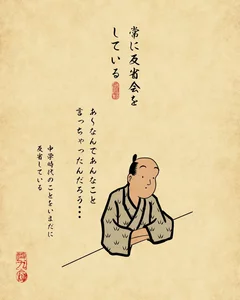 常に反省会を
している
あ〜なんであんなこと
言っちゃったんだろう・・・
中学時代のことをいまだに
反省している